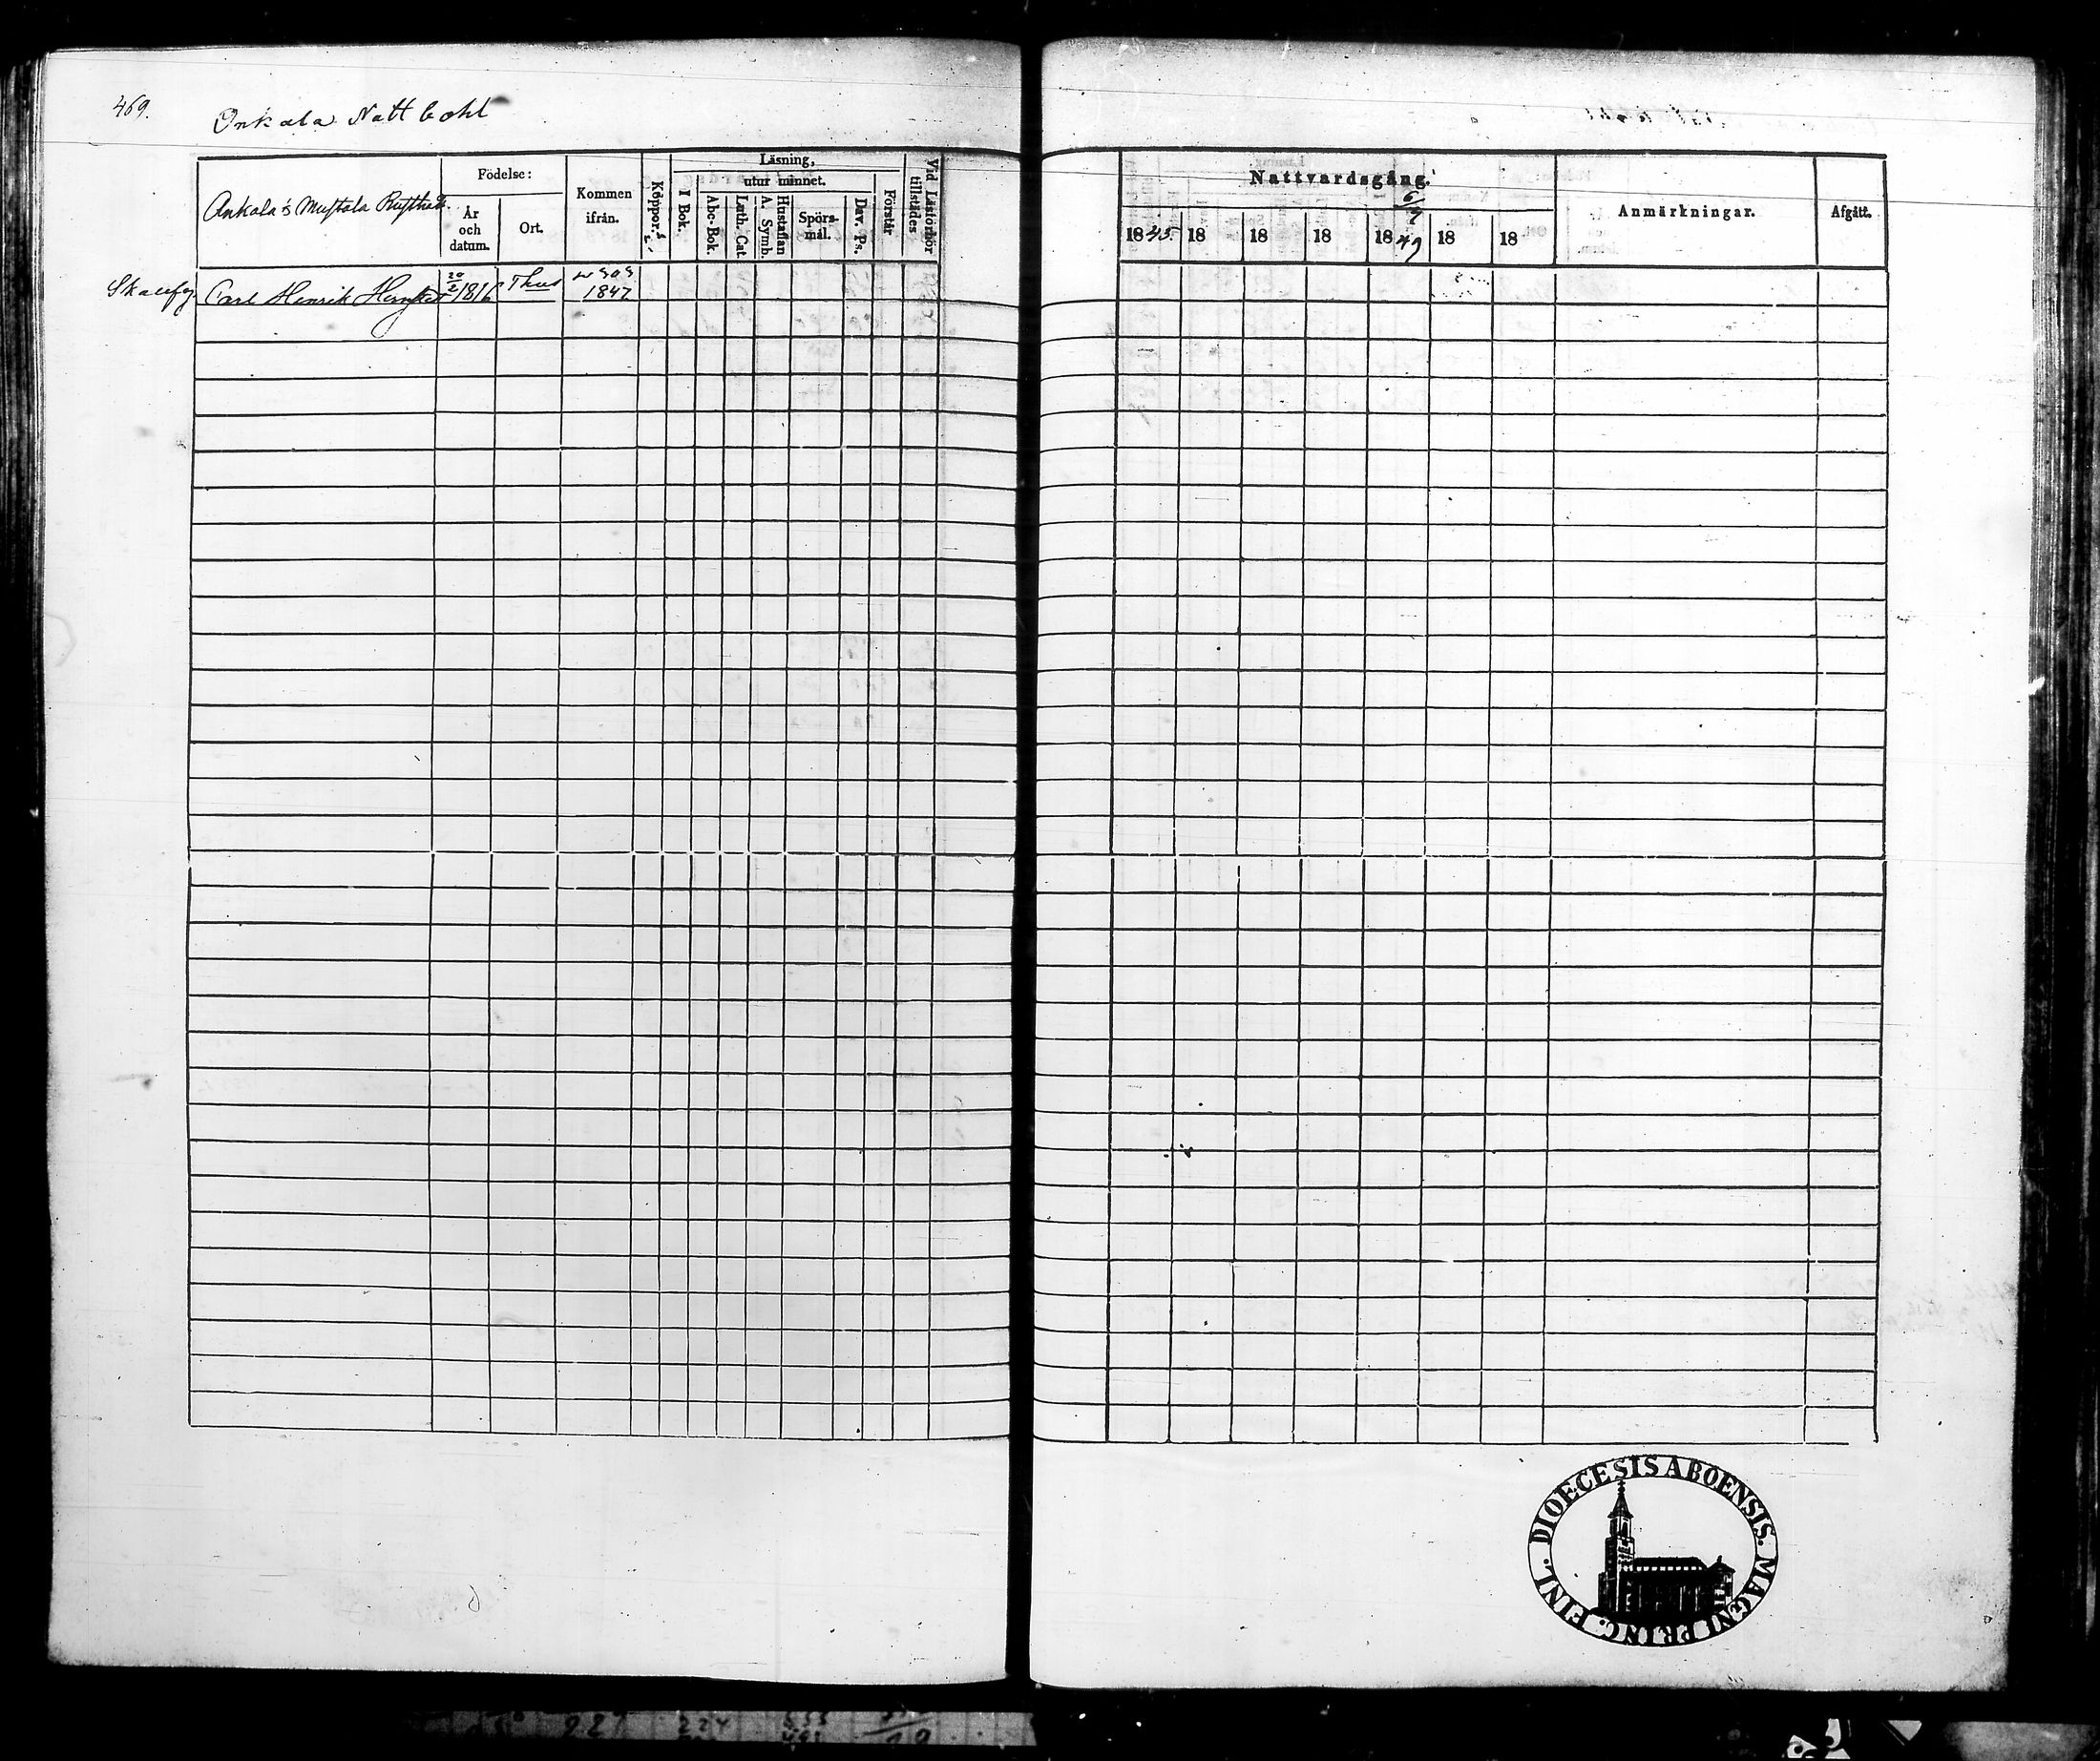 469.
Onkala Nattbohl
Ankala's
Födelse:
År och datum.
Ort.
Kommen ifrån.
Koppor.
Läsning,
I Bok.
utur minnet.
Abc-Bok.
Luth. Cat.
A. Symb.
Hustaflan
Spörs-mål.
Dav. Ps.
Förstår
Vid Läsförhör tillstädes
Carl Henrik
20/2 1816
1847
Nattvardsgång.
6/7
1845 18 18 18 1849 18 18
Anmärkningar.
Afgått.
DIOECESIS ABOENSIS. MAGNI PRINC. FINL.